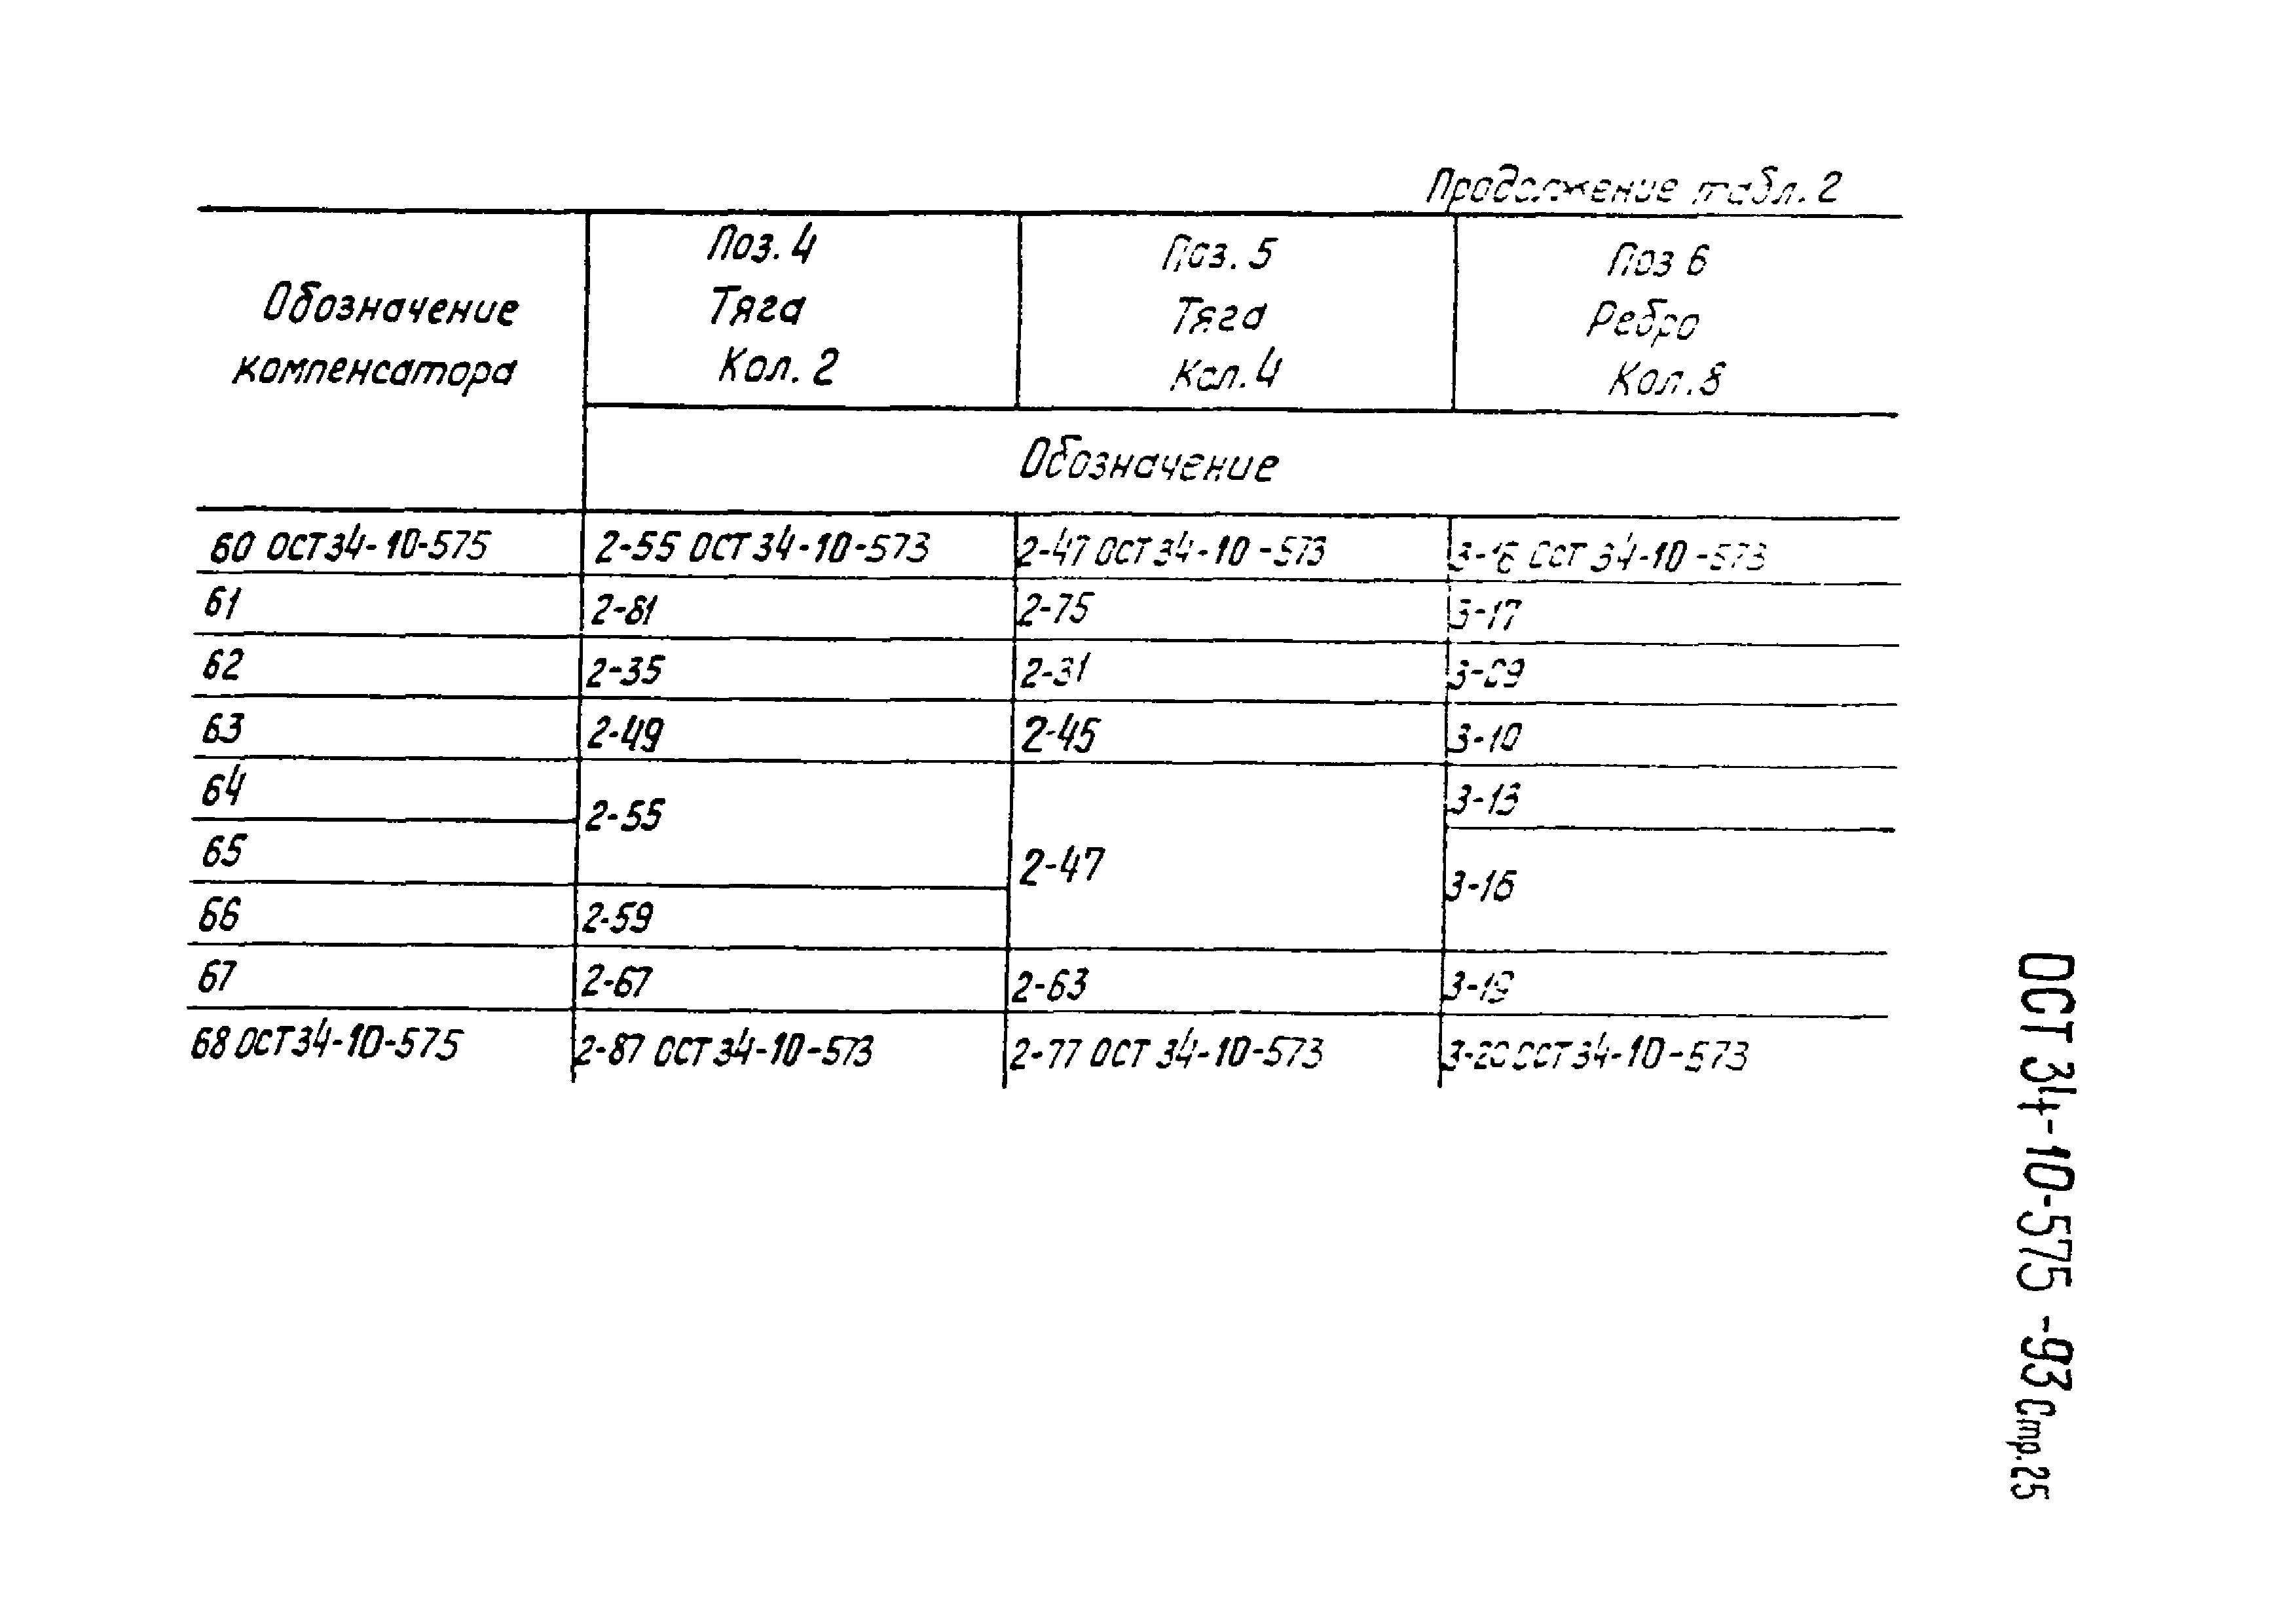 Продолжение табл. 2
Обозначение
компенсатора
Поз. 4
Тяга
Кол. 2
Поз. 5
Тяга
Кол. 4
Поз 6
Ребро
Кол. 8
Обозначение
60 ОСТ34-10-575 2-55 ОСТ34-10-573 2-47 ОСТ34-10-573 3-16 ОСТ34-10-573
61 2-81 2-75 3-17
62 2-35 2-31 3-09
63 2-49 2-45 3-10
64 2-55 3-13
65 2-47 3-16
66 2-59
67 2-67 2-63
68 ОСТ34-10-575 2-87 ОСТ34-10-573 2-77 ОСТ34-10-573 3-20 ОСТ34-10-573
ОСТ 34-10-575-93 Стр.25